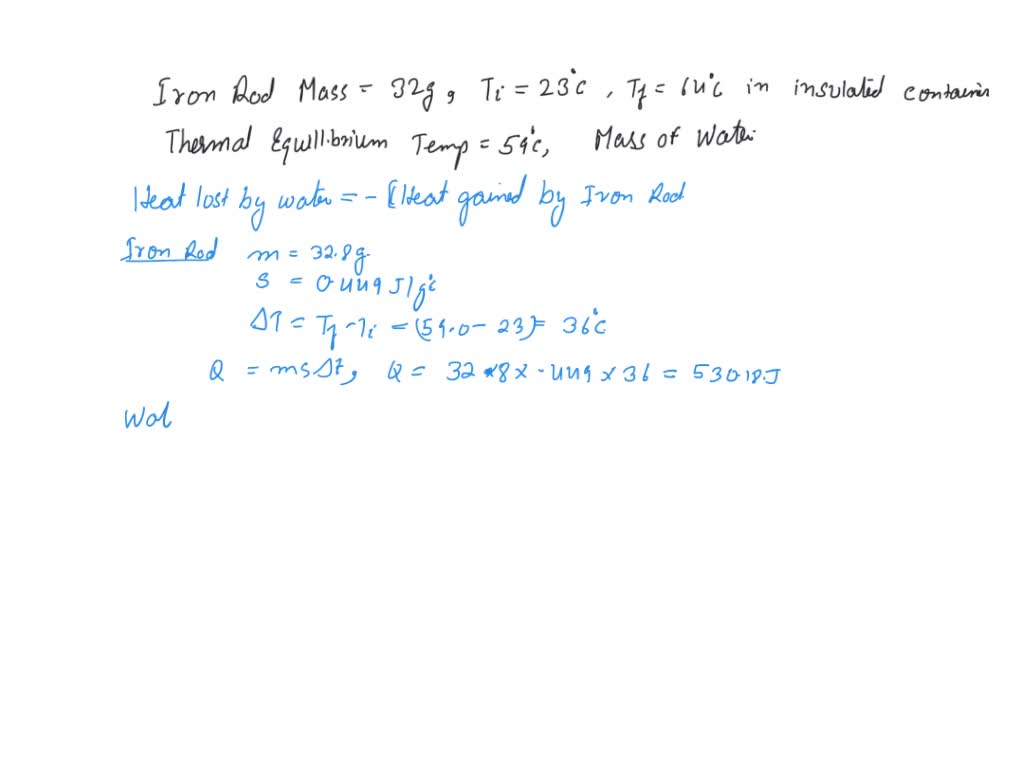 Iron Rod Mass = 32g, Ti = 23°C, Tf = 64°C in insulated container
Thermal Equilibrium Temp = 59°C, Mass of Water
Heat lost by water = - [Heat gained by Iron Rod
Iron Rod m = 32.8g.
S = 0.449 J/g°C
ΔT = Tf - Ti = (59.0 - 23) = 36°C
Q = msΔt, Q = 32.8 x .449 x 36 = 530.18J
Wat